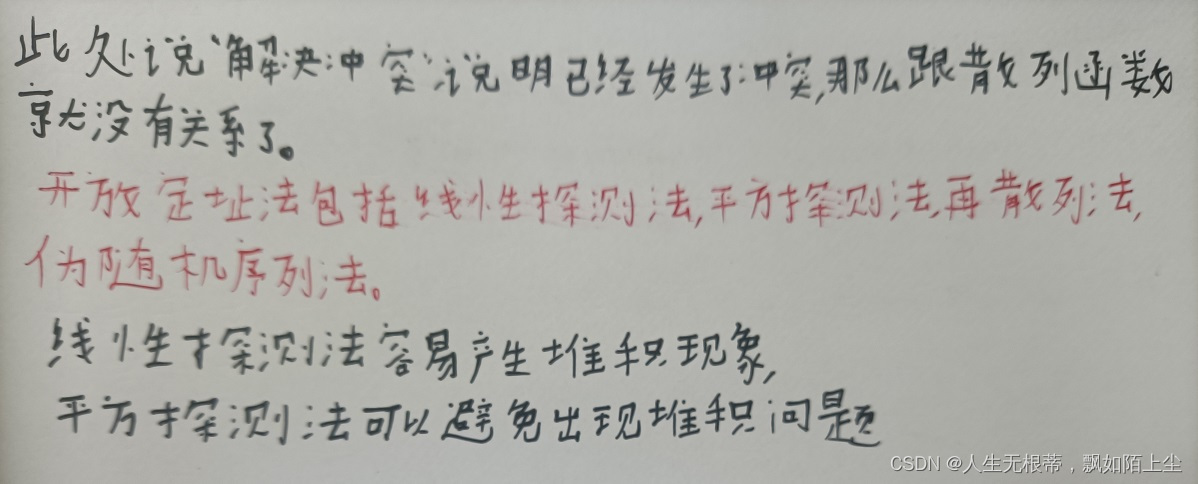 此处说“解决冲突”说明已经发生了冲突,那么跟散列函数
就没有关系了。
开放定址法包括线性探测法,平方探测法,再散列法,
伪随机序列法。
线性探测法容易产生堆积现象,
平方探测法可以避免出现堆积问题
CSDN @人生无根蒂，飘如陌上尘